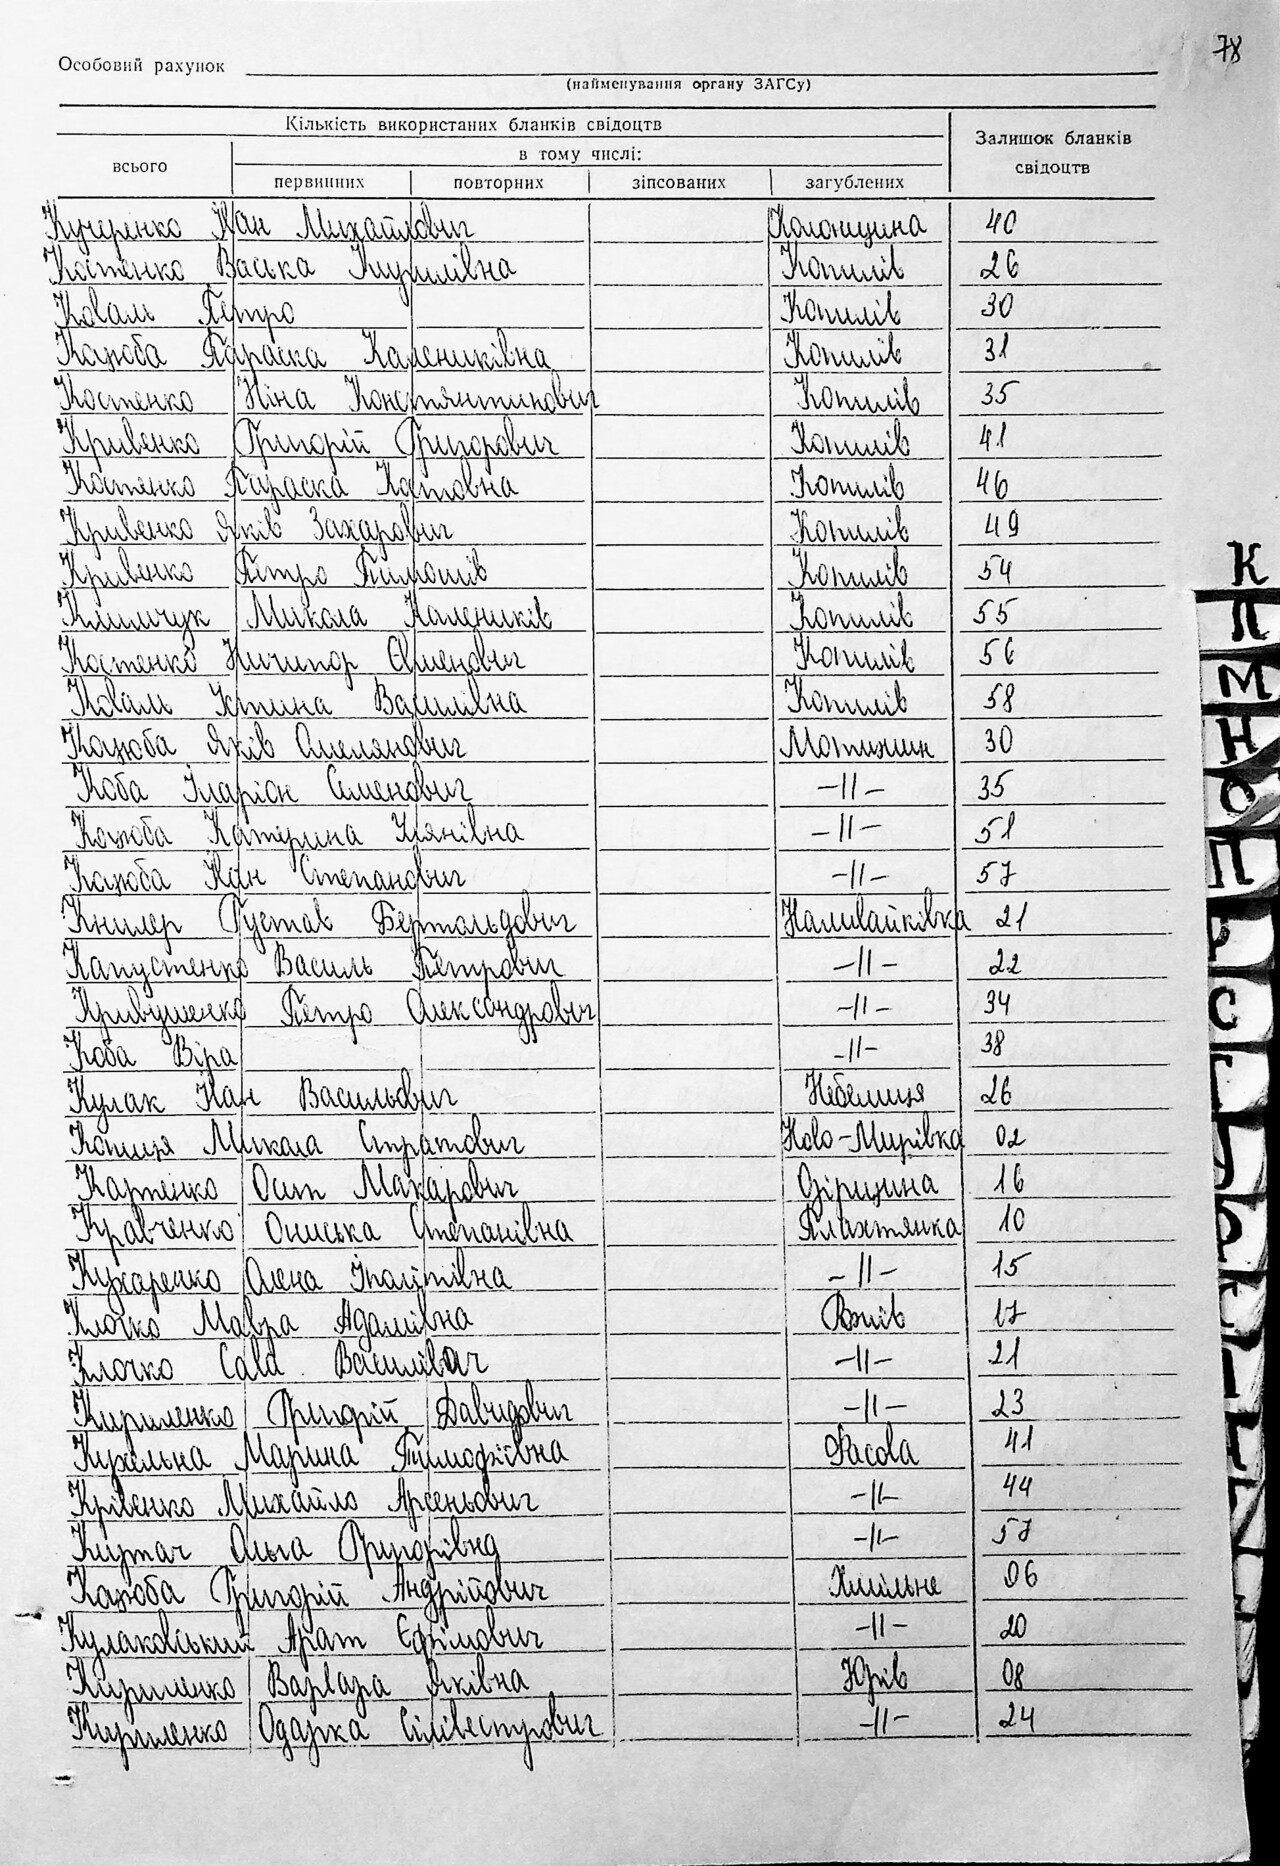 78
Особовий рахунок
(найменування органу ЗАГСу)
Кількість використаних бланків свідоцтв
Залишок бланків свідоцтв
всього
в тому числі:
первинних повторних зіпсованих загублених
Кучеренко Іван Михайлович Колонщина 40
Костенко Васька Кирилівна Копилів 26
Коваль Петро Копилів 30
Кацюба Параска Калениківна Копилів 31
Костенко Ніна Констянтинович Копилів 35
Кривенко Григорій Григорович Копилів 41
Костянко Параска Котовна Копилів 46
Кривенко Яків Захарович Копилів 49
Кривенко Петро Тимошів Копилів 54
Климчук Микола Калеників Копилів 55
Костенко Ничипор Семенович Копилів 56
Коваль Устина Василівна Копилів 58
Кацюба Яків Омелянович Мотижин 30
Коба Іларіон Семенович -||- 35
Кацюба Катерина Улянівна -||- 51
Кацюба Іван Степанович -||- 57
Книлер Густав Бертольдович Наливайківка 21
Капустенко Василь Петрович -||- 22
Кривушенко Петро Олександрович -||- 34
Коба Віра -||- 38
Кулак Іван Васильович Небелиця 26
Копиця Микола Стратович Ново-Мирівка 02
Карпенко Осип Макарович Озірщина 16
Кравченко Ониська Степанівна Плахтянка 10
Кухаренко Олена Іполітівна -||- 15
Клочко Мавра Адамівна Рожів 17
Клочко Сава Василівач -||- 21
Кириленко Григорій Давидович -||- 23
Кухельна Марина Тимофіївна Фасова 41
Крівенко Михайло Арсеньович -||- 44
Киртач Ольга Григорівна -||- 57
Кацюба Григорій Андрійович Хмільне 06
Кулаковський Арат Єфімович -||- 20
Кириленко Варвара Яківна Юрів 08
Кириленко Одарка Сілівестрович -||- 24
К
Л
М
Н
О
П
С